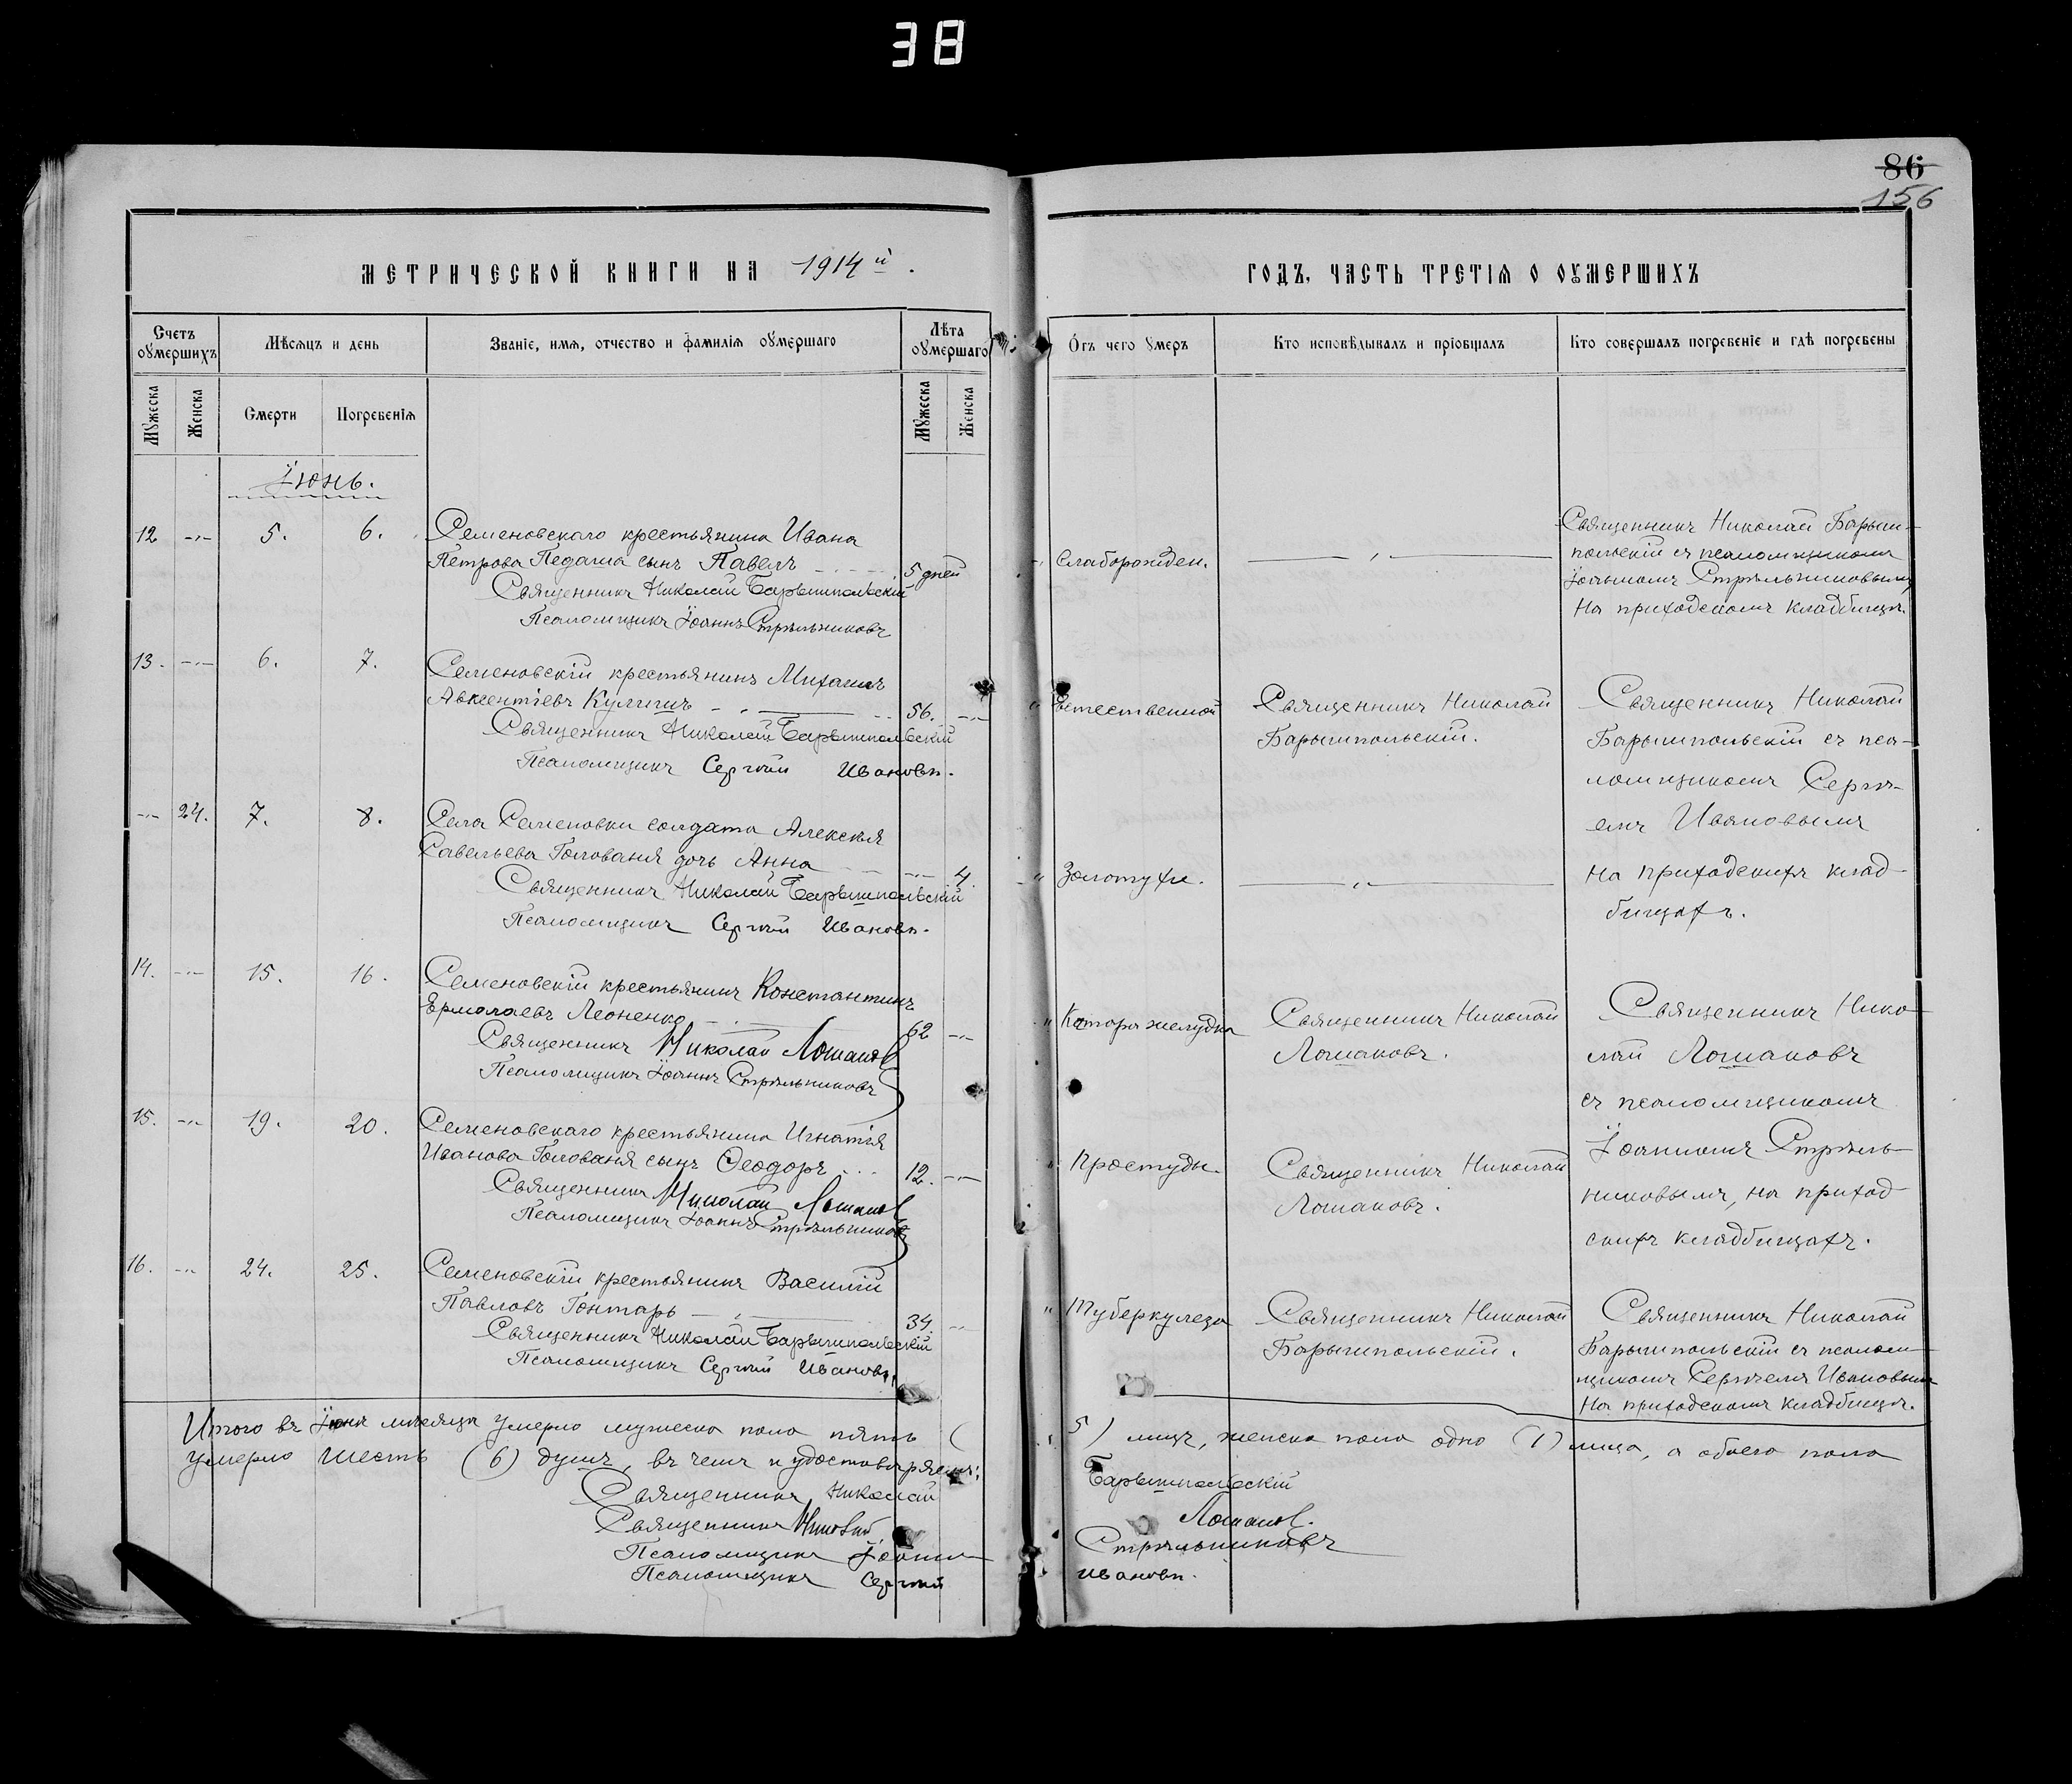 38
86
156
МЕТРИЧЕСКОЙ КНИГИ НА 1914й.
ГОДЪ, ЧАСТЬ ТРЕТІЯ О ОУМЕРШИХЪ
Счетъ оумершихъ
Мѣсяцъ и день
Званіе, имя, отчество и фамилія оумершаго
Лѣта оумершаго
Отъ чего умеръ
Кто исповѣдывалъ и пріобщалъ
Кто совершалъ погребеніе и гдѣ погребены
Мужеска
Женска
Смерти
Погребенія
Мужеска
Женска
Іюнь.
12 5. 6.
Семеновскаго крестьянина Ивана
Петрова Педаша сынъ Павелъ 5 дней
Священникъ Николай Барышпольскій
Псаломщикъ Іоаннъ Стрѣльниковъ
слаборожден.
Священникъ Николай Барыш-
польскій съ псаломщикомъ
Іоанномъ Стрѣльниковымъ,
на приходскомъ кладбищѣ.
13. 6. 7.
Семеновскій крестьянинъ Михаилъ
Авксентіевъ Кулишъ 56.
Священникъ Николай Барышпольскій
Псаломщикъ Сергѣй Ивановъ.
Естественной
Священникъ Николай
Барышпольскій.
Священникъ Николай
Барышпольскій съ пса-
ломщикомъ Сергѣ-
емъ Ивановымъ
на приходскихъ клад-
бищахъ.
24. 7. 8.
Села Семеновки солдата Алексѣя
Савельева Голованя дочь Анна 4.
Священникъ Николай Барышпольскій
Псаломщикъ Сергѣй Ивановъ.
Золотухи.
14. 15. 16.
Семеновскій крестьянинъ Константинъ
Ермолаевъ Леоненко 62
Священникъ Николай Лошаков
Псаломщикъ Іоаннъ Стрѣльниковъ
Катара желудка
Священникъ Николай
Лошаковъ.
Священникъ Нико-
лай Лошаковъ
съ псаломщикомъ
Іоанномъ Стрѣль-
никовымъ, на приход-
скихъ кладбищахъ.
15. 19. 20.
Семеновскаго крестьянина Игнатія
Иванова Голованя сынъ Ѳеодоръ 12.
Священникъ Николай Лошаков
Псаломщикъ Іоаннъ Стрѣльниковъ
Простуды.
Священникъ Николай
Лошаковъ.
16. 24. 25.
Семеновскій крестьянинъ Василій
Павловъ Гонтарь 34.
Священникъ Николай Барышпольскій
Псаломщикъ Сергѣй Ивановъ.
Туберкулеза
Священникъ Николай
Барышпольскій.
Священникъ Николай
Барышпольскій съ псалом-
щикомъ Сергѣемъ Ивановымъ
на приходскомъ кладбищѣ.
Итого въ Іюнѣ мѣсяцѣ умерло мужеска пола пять (5) лицъ, женска пола одно (1) лицо, а обоего пола
умерло шесть (6) душъ, въ чемъ и удостовѣряемъ:
Священникъ Николай Барышпольскій
Священникъ Николай Лошаков.
Псаломщикъ Іоаннъ Стрѣльниковъ
Псаломщикъ Сергѣй Ивановъ.